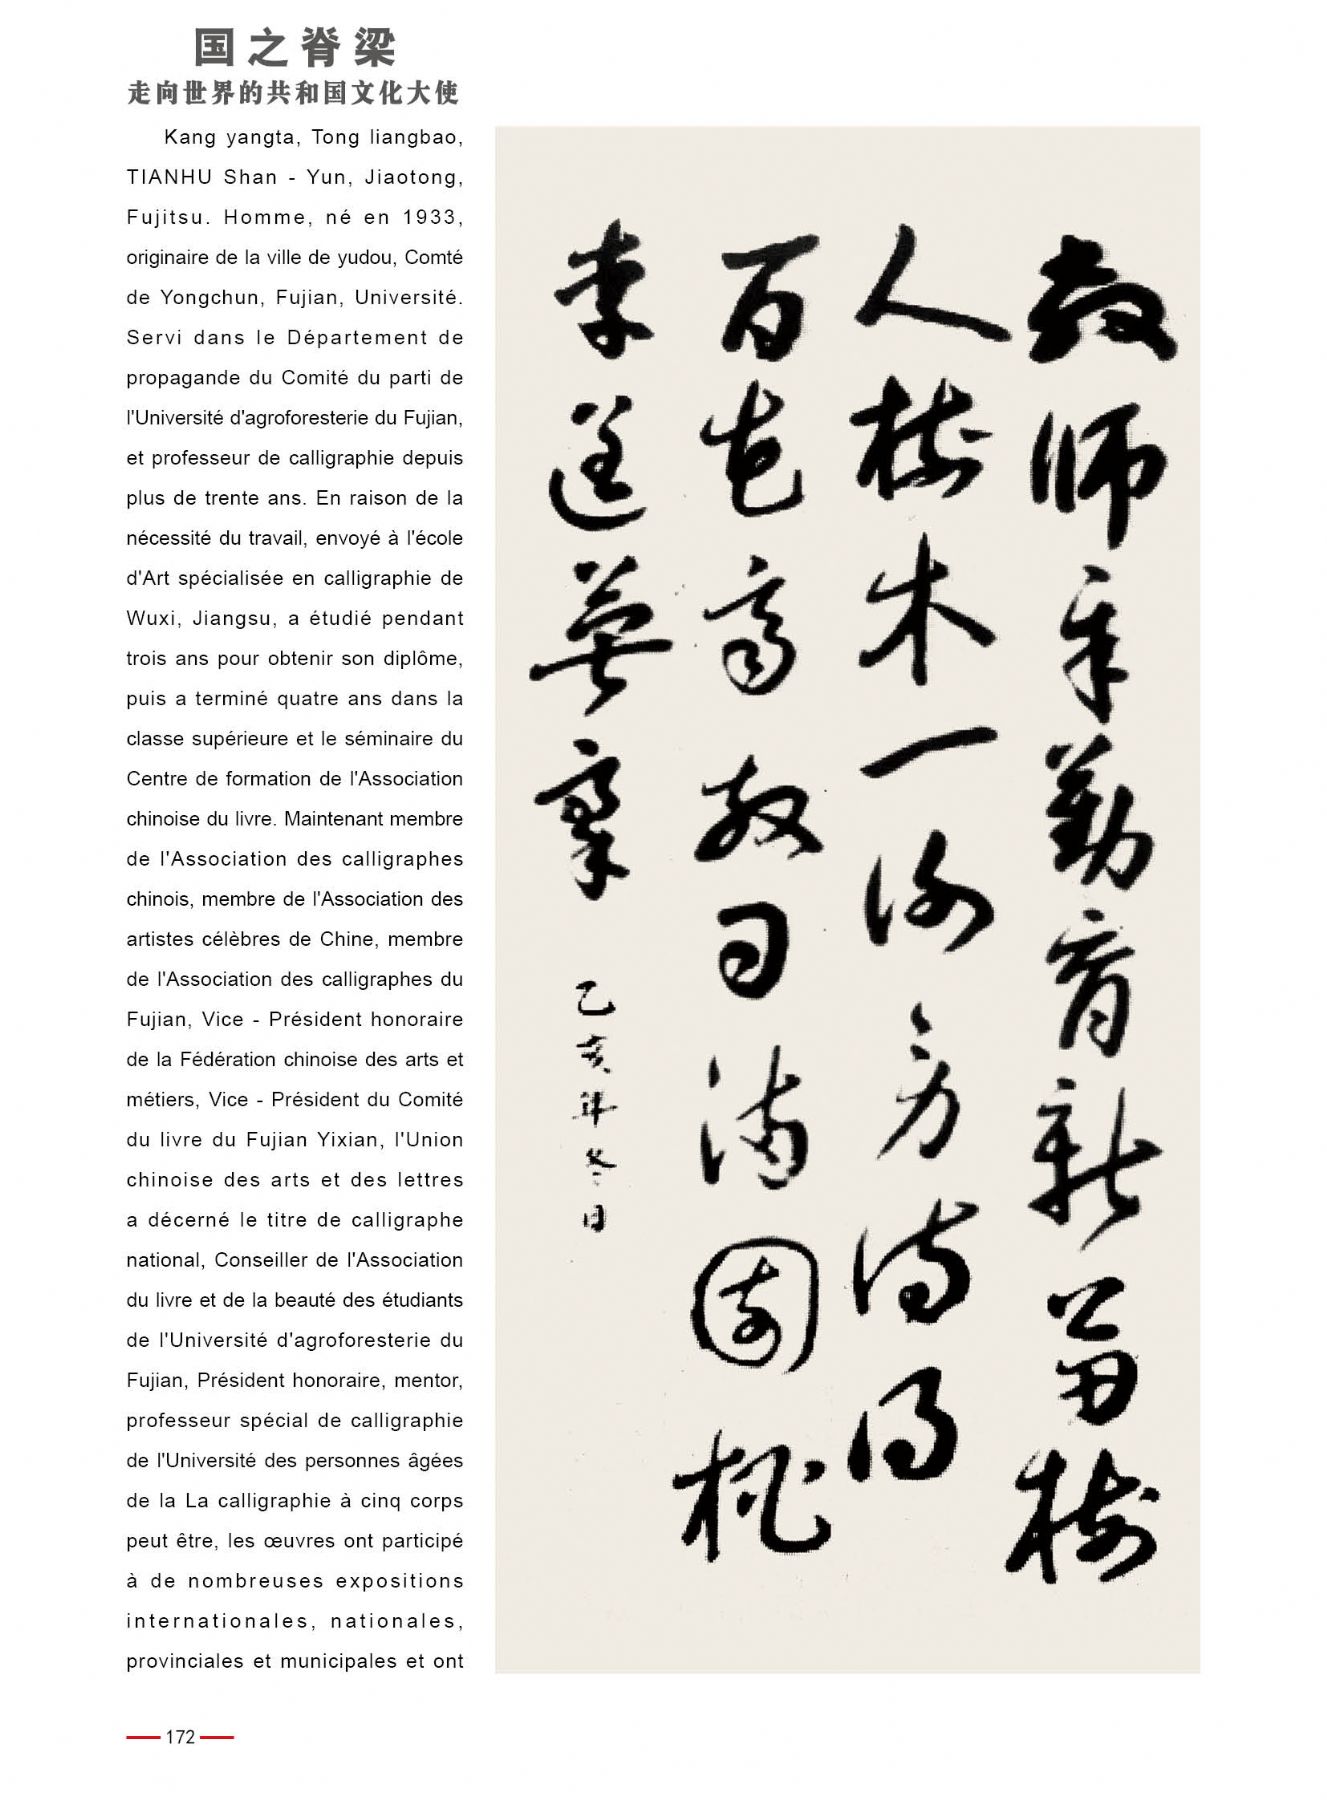 国之脊梁
走向世界的共和国文化大使
Kang yangta, Tong liangbao,
TIANHU Shan - Yun, Jiaotong,
Fujitsu. Homme, né en 1933,
originaire de la ville de yudou, Comté
de Yongchun, Fujian, Université.
Servi dans le Département de
propagande du Comité du parti de
l'Université d'agroforesterie du Fujian,
et professeur de calligraphie depuis
plus de trente ans. En raison de la
nécessité du travail, envoyé à l'école
d'Art spécialisée en calligraphie de
Wuxi, Jiangsu, a étudié pendant
trois ans pour obtenir son diplôme,
puis a terminé quatre ans dans la
classe supérieure et le séminaire du
Centre de formation de l'Association
chinoise du livre. Maintenant membre
de l'Association des calligraphes
chinois, membre de l'Association des
artistes célèbres de Chine, membre
de l'Association des calligraphes du
Fujian, Vice - Président honoraire
de la Fédération chinoise des arts et
métiers, Vice - Président du Comité
du livre du Fujian Yixian, l'Union
chinoise des arts et des lettres
a décerné le titre de calligraphe
national, Conseiller de l'Association
du livre et de la beauté des étudiants
de l'Université d'agroforesterie du
Fujian, Président honoraire, mentor,
professeur spécial de calligraphie
de l'Université des personnes âgées
de la La calligraphie à cinq corps
peut être, les œuvres ont participé
à de nombreuses expositions
internationales, nationales,
provinciales et municipales et ont
教师辛勤育新苗树
人树木一待得
百花齐放日满园桃
李逞英豪
乙亥年冬日
172